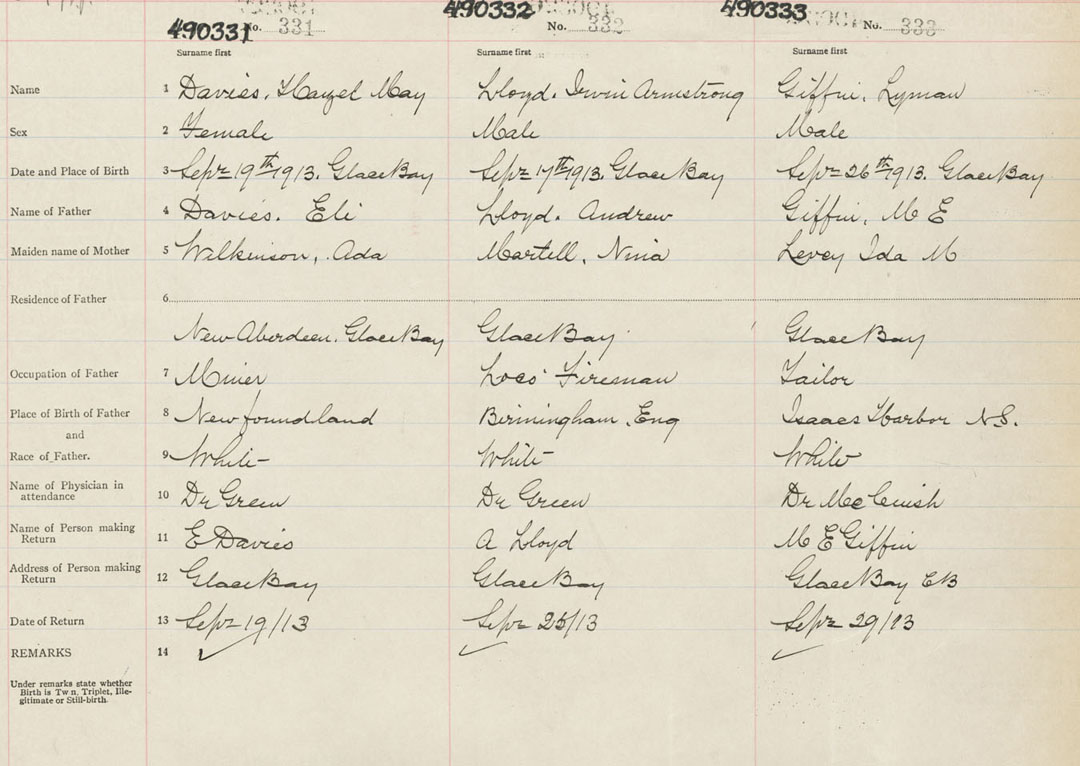 490331 No. 331 490332 No. 332 490333 No. 333
Surname first Surname first Surname first
Name 1 Davies. Hazel May Lloyd. Irvin Armstrong Giffin, Lyman
Sex 2 Female Male Male
Date and Place of Birth 3 Sept 19th 1913. Glace Bay Sept 17th 1913. Glace Bay Sept 26th 1913. Glace Bay
Name of Father 4 Davies. Eli Lloyd. Andrew Giffin, M E
Maiden name of Mother 5 Wilkinson, Ada Martell, Nina Levey Ida M
Residence of Father 6
New Aberdeen. Glace Bay Glace Bay Glace Bay
Occupation of Father 7 Miner Loco Fireman Tailor
Place of Birth of Father 8 Newfoundland Birmingham, Eng Isaacs Harbor N.S.
and
Race of Father. 9 White White White
Name of Physician in
attendance 10 Dr Green Dr Green Dr
Name of Person making
Return 11 E Davies A Lloyd M E Giffin
Address of Person making
Return 12 Glace Bay Glace Bay Glace Bay CB
Date of Return 13 Sept 19/13 Sept 25/13 Sept 29/13
REMARKS 14
Under remarks state whether
Birth is Tw n, Triplet, Ille-
gitimate or Still-birth.